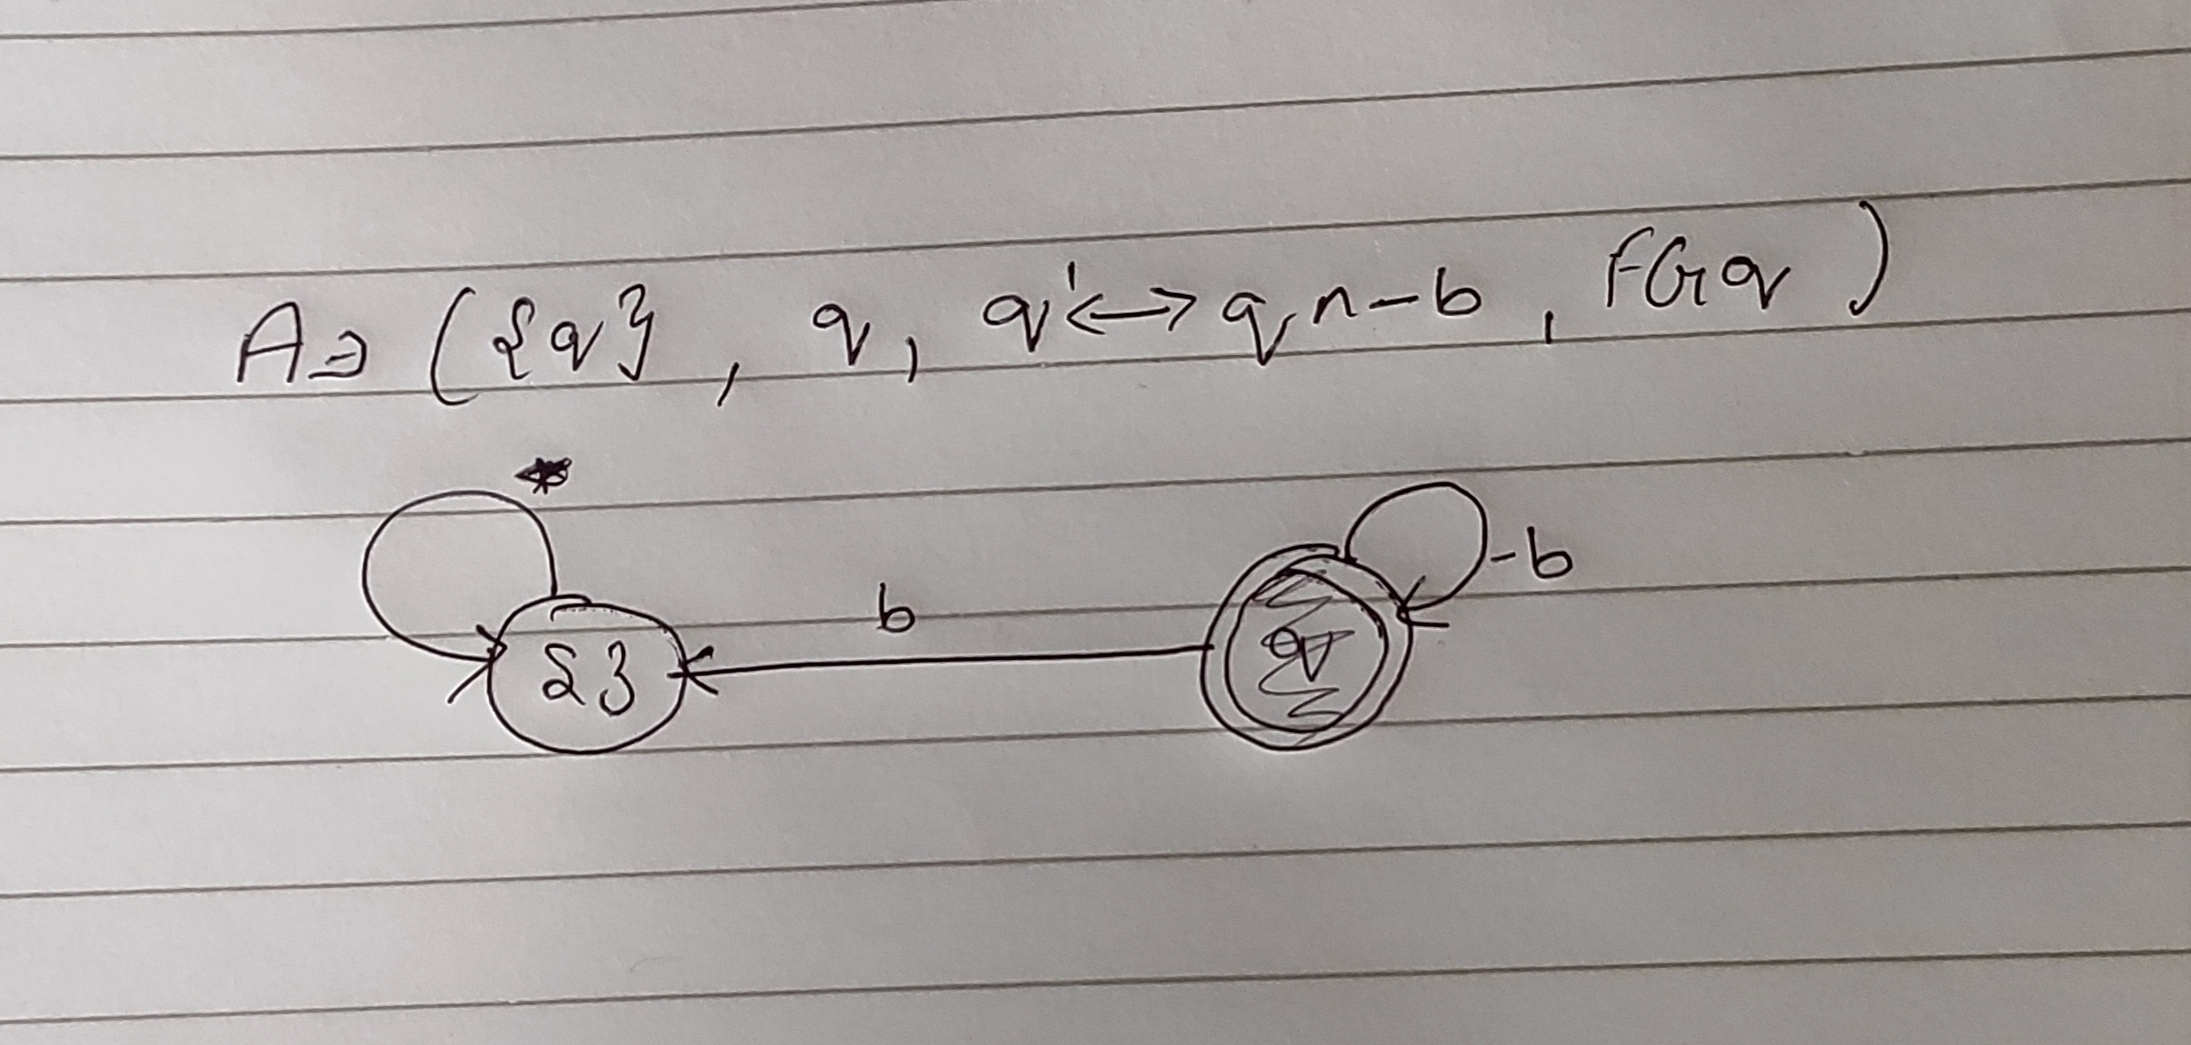 A ⇒ ({q}, q, q' ↔ q ∧ ¬b, FGq)
*
¬b
b
{}
q